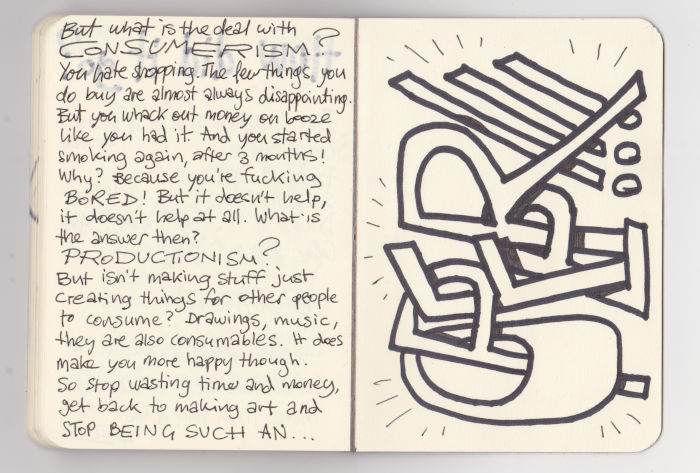 But what is the deal with
CONSUMERISM?
You hate shopping. The few things you
do buy are almost always disappointing.
But you whack out money on booze
like you had it. And you started
smoking again, after 3 months!
Why? Because you're fucking
BORED! But it doesn't help,
it doesn't help at all. What is
the answer then?
PRODUCTIONISM?
But isn't making stuff just
creating things for other people
to consume? Drawings, music,
they are also consumables. It does
make you more happy though.
So stop wasting time and money,
get back to making art and
STOP BEING SUCH AN...